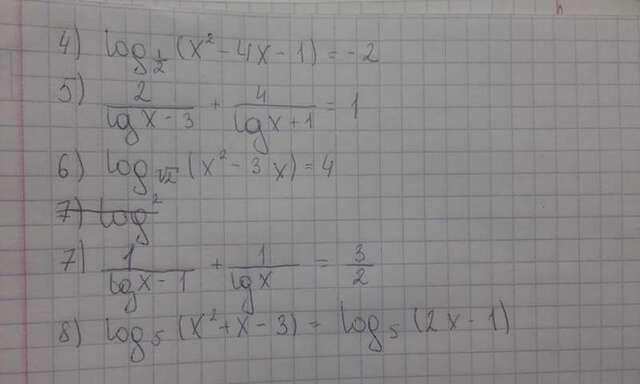 4) log_{1/2} (x² - 4x - 1) = -2
5) 2/(lg x - 3) + 4/(lg x + 1) = 1
6) log_{√2} (x² - 3x) = 4
7) log²
7) 1/(lg x - 1) + 1/(lg x) = 3/2
8) log₅ (x² + x - 3) = log₅ (2x - 1)